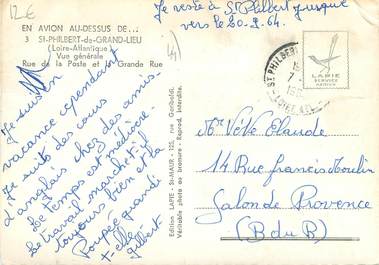 12€
Je reste à St Philbert jusque
vers le 20-9-64.
EN AVION AU-DESSUS DE...
3 ST-PHILBERT-de-GRAND-LIEU
(Loire-Atlantique)
Vue générale
Rue de la Poste et la Grande Rue
Je suis en
vacance cependant
Je suis des cours
d'anglais chez des amis
Le temps est médiocre.
Le travail marche-t-il
toujours bien et la
Poupée grandi
t-elle
Gilbert
Edition LAPIE - St-MAUR - 125, rue Garibaldi,
Véritable photo au bromure - Reprod. interdite.
ST PHILBERT
LAPIE
SERVICE
AERIEN
Mr Claude
14 Rue Francis Moulin
Salon de Provence
(B du R)